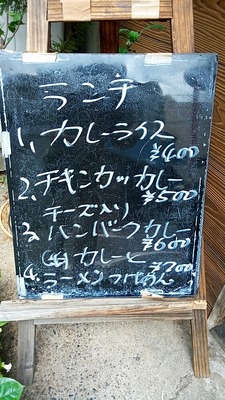 ランチ
1、カレーライス
¥400
2、チキンカツカレー
¥500
チーズ入り
3、ハンバーグカレー
¥600
(小)カレーと
¥700
4、ラーメンつけめん